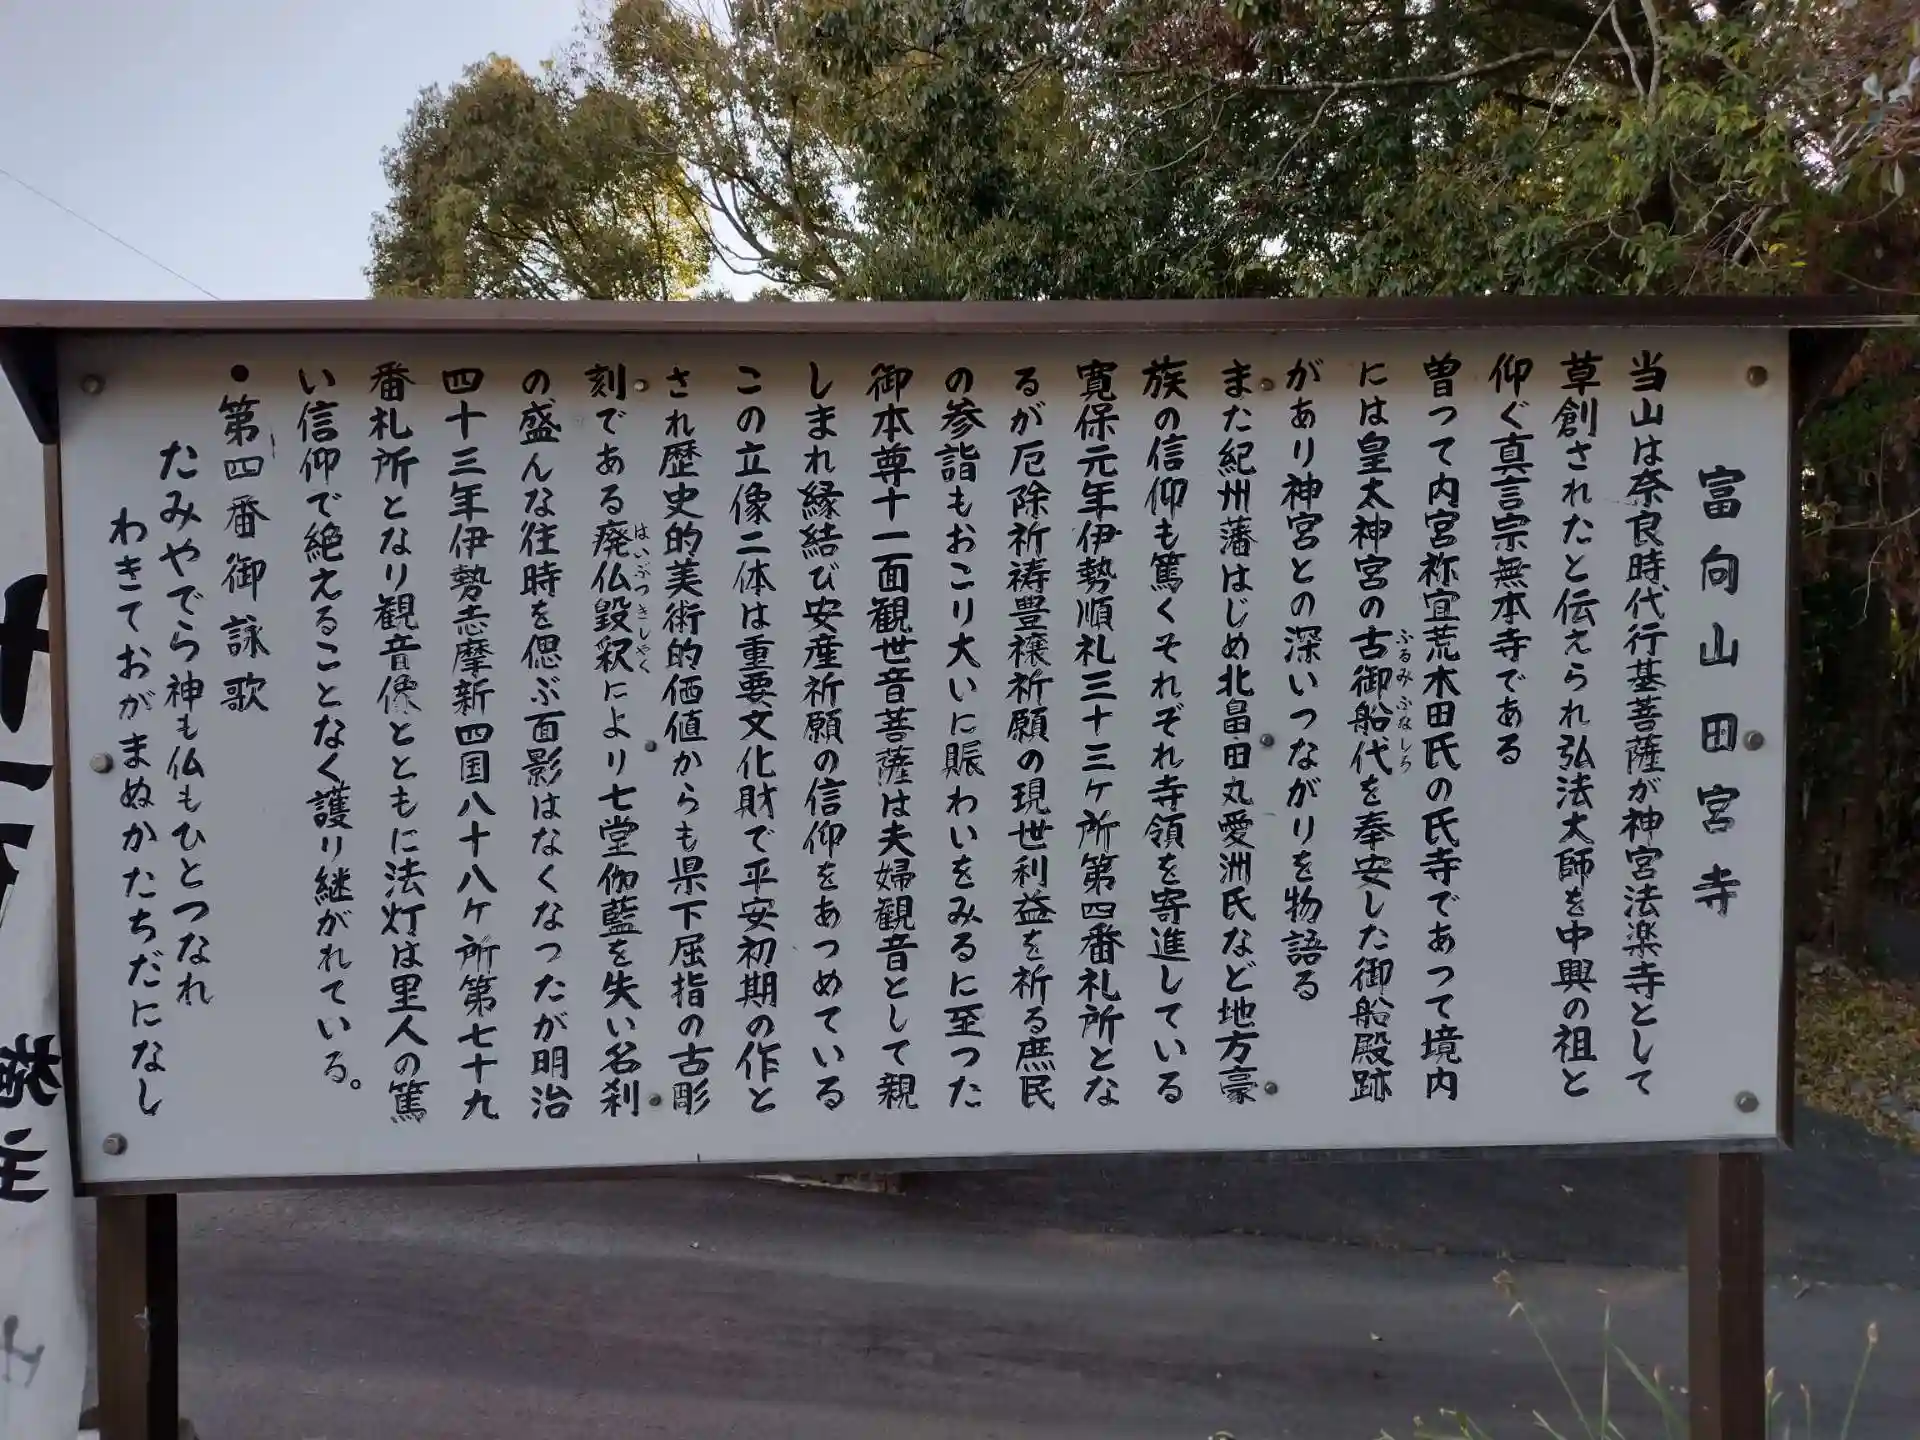 富向山田宮寺
当山は奈良時代行基菩薩が神宮法楽寺として
草創されたと伝えられ弘法大師を中興の祖と
仰ぐ真言宗無本寺である
曽って内宮祢宜荒木田氏の氏寺であって境内
には皇太神宮の古御船代を奉安した御船殿跡
ふるみふなしろ
があり神宮との深いつながりを物語る
また紀州藩はじめ北畠田丸愛洲氏など地方豪
族の信仰も篤くそれぞれ寺領を寄進している
寛保元年伊勢順礼三十三ヶ所第四番札所とな
るが厄除祈祷豊穣祈願の現世利益を祈る庶民
の参詣もおこり大いに賑わいをみるに至った
御本尊十一面観世音菩薩は夫婦観音として親
しまれ縁結び安産祈願の信仰をあつめている
この立像二体は重要文化財で平安初期の作と
され歴史的美術的価値からも県下屈指の古彫
刻である廃仏毀釈により七堂伽藍を失い名刹
はいぶつきしゃく
の盛んな往時を偲ぶ面影はなくなったが明治
四十三年伊勢志摩新四国八十八ヶ所第七十九
番札所となり観音像とともに法灯は里人の篤
い信仰で絶えることなく護り継がれている。
•第四番御詠歌
たみやでら神も仏もひとつなれ
わきておがまぬかたちだになし